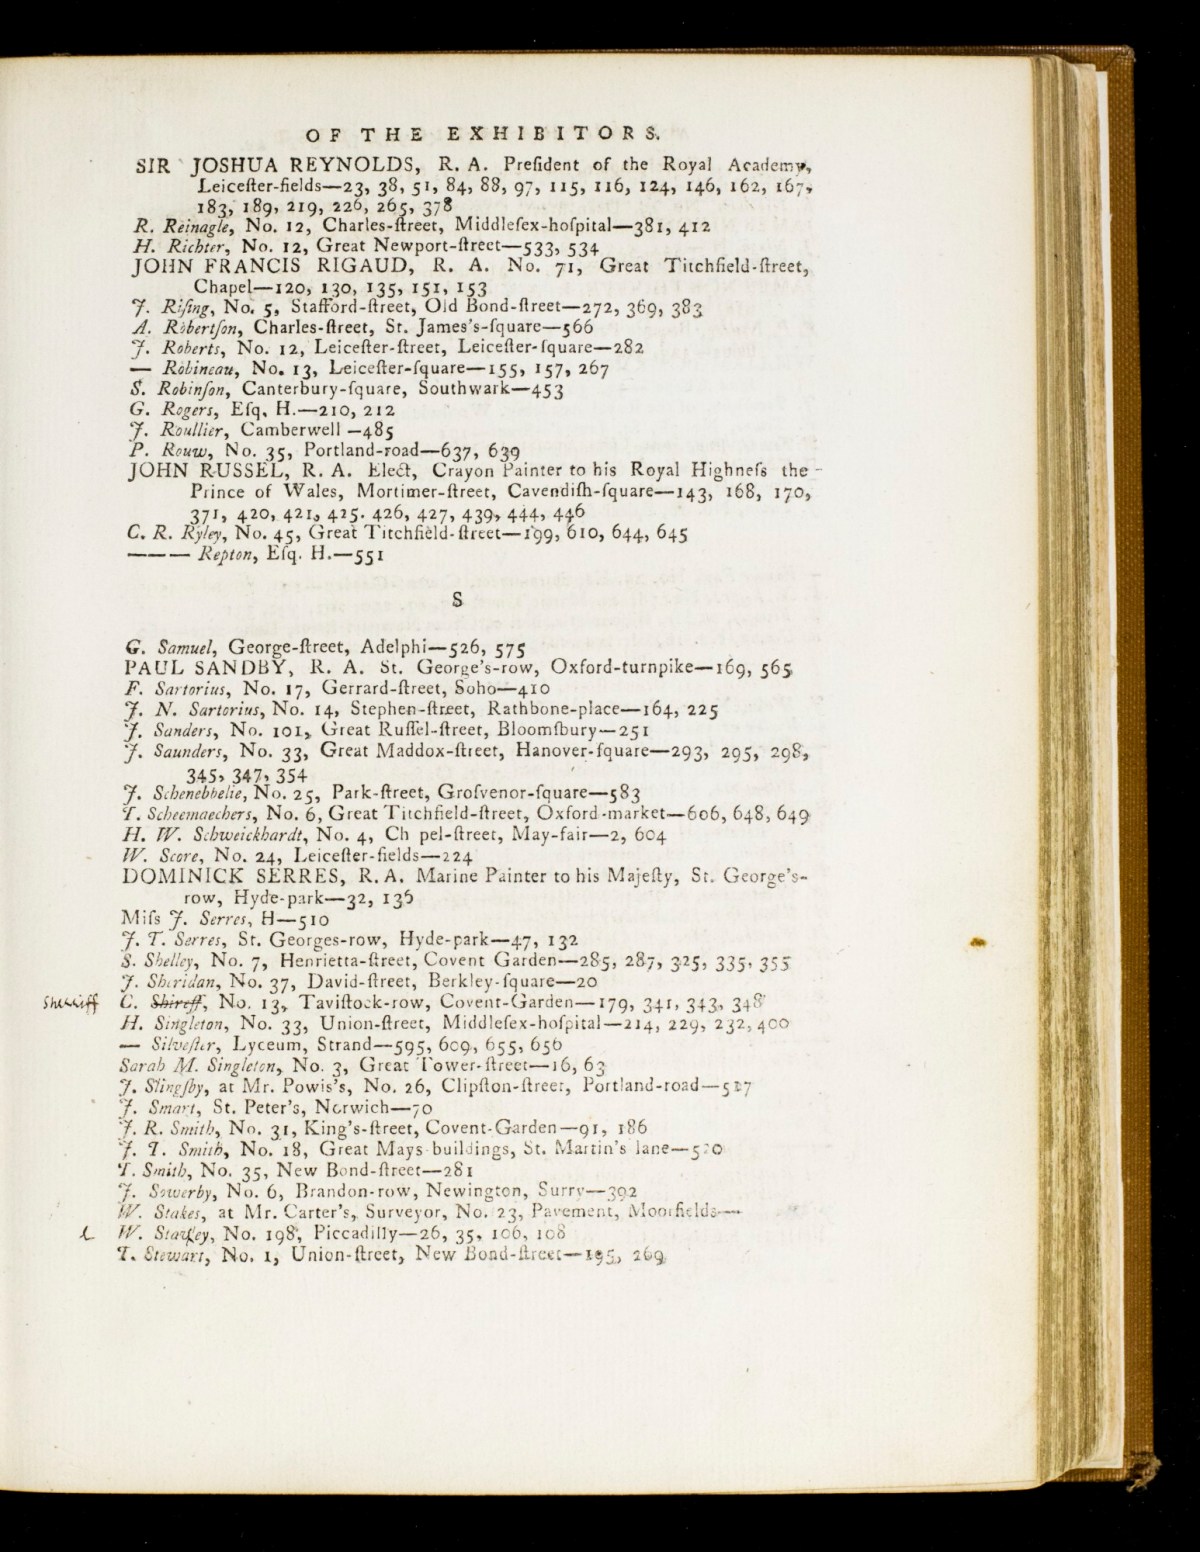 OF THE EXHIBITORS.
SIR JOSHUA REYNOLDS, R. A. Preſident of the Royal Academy,
Leiceſter-fields—23, 38, 51, 84, 88, 97, 115, 116, 124, 146, 162, 167,
183, 189, 219, 226, 265, 378
R. Reinagle, No. 12, Charles-ſtreet, Middleſex-hoſpital—381, 412
H. Richter, No. 12, Great Newport-ſtreet—533, 534
JOHN FRANCIS RIGAUD, R. A. No. 71, Great Titchfield-ſtreet,
Chapel—120, 130, 135, 151, 153
J. Riſing, No. 5, Stafford-ſtreet, Old Bond-ſtreet—272, 369, 383
A. Robertſon, Charles-ſtreet, St. James's-ſquare—566
J. Roberts, No. 12, Leiceſter-ſtreet, Leiceſter-ſquare—282
— Robineau, No. 13, Leiceſter-ſquare—155, 157, 267
S. Robinſon, Canterbury-ſquare, Southwark—453
G. Rogers, Eſq. H.—210, 212
J. Roullier, Camberwell —485
P. Rouw, No. 35, Portland-road—637, 639
JOHN RUSSEL, R. A. Elect, Crayon Painter to his Royal Highneſs the
Prince of Wales, Mortimer-ſtreet, Cavendiſh-ſquare—143, 168, 170,
371, 420, 421, 425. 426, 427, 439, 444, 446
C. R. Ryley, No. 45, Great Titchfield-ſtreet—199, 610, 644, 645
——— Repton, Eſq. H.—551
S
G. Samuel, George-ſtreet, Adelphi—526, 575
PAUL SANDBY, R. A. St. George's-row, Oxford-turnpike—169, 565
F. Sartorius, No. 17, Gerrard-ſtreet, Soho—410
J. N. Sartorius, No. 14, Stephen-ſtreet, Rathbone-place—164, 225
J. Sanders, No. 101, Great Ruſſel-ſtreet, Bloomſbury—251
J. Saunders, No. 33, Great Maddox-ſtreet, Hanover-ſquare—293, 295, 298,
345, 347, 354
J. Schenebbelie, No. 25, Park-ſtreet, Groſvenor-ſquare—583
T. Scheemaechers, No. 6, Great Titchfield-ſtreet, Oxford-market—606, 648, 649
H. W. Schweickhardt, No. 4, Ch pel-ſtreet, May-fair—2, 604
W. Score, No. 24, Leiceſter-fields—224
DOMINICK SERRES, R. A. Marine Painter to his Majeſty, St. George's-
row, Hyde-park—32, 136
Miſs J. Serres, H—510
J. T. Serres, St. Georges-row, Hyde-park—47, 132
S. Shelley, No. 7, Henrietta-ſtreet, Covent Garden—285, 287, 325, 335, 355
J. Sheridan, No. 37, David-ſtreet, Berkley-ſquare—20
Sherriff C. Shireff, No. 13, Taviſtock-row, Covent-Garden—179, 341, 343, 348
H. Singleton, No. 33, Union-ſtreet, Middleſex-hoſpital—214, 229, 232, 400
— Silveſter, Lyceum, Strand—595, 609, 655, 656
Sarah M. Singleton, No. 3, Great Tower-ſtreet—16, 63
J. Slingſby, at Mr. Powis's, No. 26, Clipſton-ſtreet, Portland-road—527
J. Smart, St. Peter's, Norwich—70
J. R. Smith, No. 31, King's-ſtreet, Covent-Garden—91, 186
J. T. Smith, No. 18, Great Mays-buildings, St. Martin's lane—
T. Smith, No. 35, New Bond-ſtreet—281
J. Sowerby, No. 6, Brandon-row, Newington, Surry—392
W. Stakes, at Mr. Carter's, Surveyor, No. 23, Pavement, Moorfields—
L W. Staveley, No. 198, Piccadilly—26, 35, 106, 108
T. Stewart, No. 1, Union-ſtreet, New Bond-ſtreet—195, 269